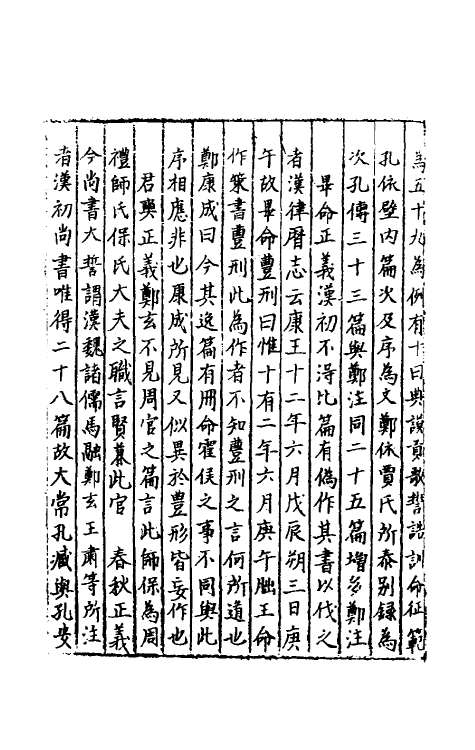 為五十九為例有十曰典謨貢歌誓誥訓命征範
孔依壁內篇次及序為文鄭依賈氏所奏別錄為
次孔傳三十三篇與鄭注同二十五篇增多鄭注
畢命正義漢初不得此篇有偽作其書以代之
者漢律曆志云康王十二年六月戊辰朔三日庚
午故畢命豐刑曰惟十有二年六月庚午朏王命
作策書豐刑此為作者不知豐刑之言何所道也
鄭康成曰今其逸篇有冊命霍侯之事不同與此
序相應非也康成所見又似異於豐形皆妄作也
君奭正義鄭玄不見周官之篇言此師保為周
禮師氏保氏大夫之職言賢蓋此官 春秋正義
今尚書大誓謂漢魏諸儒馬融鄭玄王肅等所注
者漢初尚書唯得二十八篇故大常孔臧與孔安